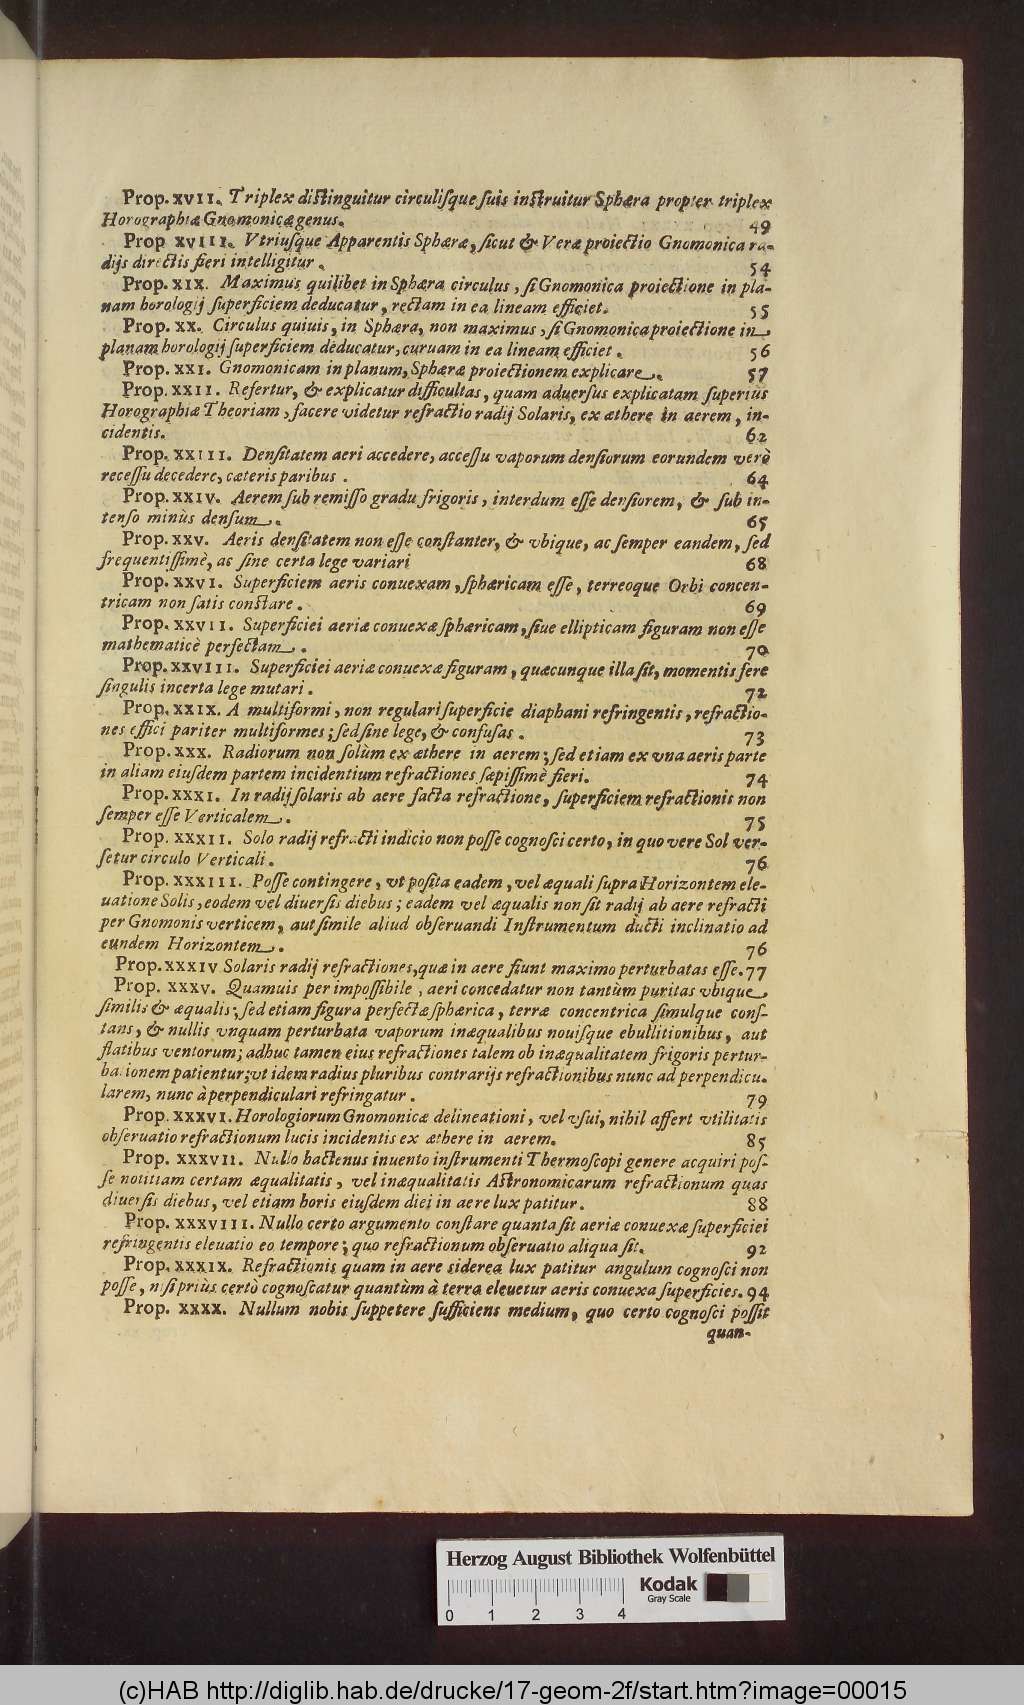 Prop. XVII. Triplex distinguitur circulisque suis instruitur Sphæra propter triplex
Horographiæ Gnomonicæ genus. 49
Prop XVIII. Vtriusque Apparentis Sphæræ, sicut & Veræ proiectio Gnomonica ra-
dijs directis fieri intelligitur. 54
Prop. XIX. Maximus quilibet in Sphæra circulus, si Gnomonica proiectione in pla-
nam horologij superficiem deducatur, rectam in ea lineam efficiet. 55
Prop. XX. Circulus quiuis, in Sphæra, non maximus, si Gnomonica proiectione in
planam horologij superficiem deducatur, curuam in ea lineam efficiet. 56
Prop. XXI. Gnomonicam in planum, Sphæræ proiectionem explicare. 57
Prop. XXII. Refertur, & explicatur difficultas, quam aduersus explicatam superiùs
Horographiæ Theoriam, facere videtur refractio radij Solaris, ex æthere in aerem, in-
cidentis. 62
Prop. XXIII. Densitatem aeri accedere, accessu vaporum densiorum eorundem verò
recessu decedere, cæteris paribus. 64
Prop. XXIV. Aerem sub remisso gradu frigoris, interdum esse densiorem, & sub in-
tenso minùs densum. 65
Prop. XXV. Aeris densitatem non esse constanter, & vbique, ac semper eandem, sed
frequentissimè, ac sine certa lege variari 68
Prop. XXVI. Superficiem aeris conuexam, sphæricam esse, terreoque Orbi concen-
tricam non satis constare. 69
Prop. XXVII. Superficiei aeriæ conuexæ sphæricam, siue ellipticam figuram non esse
mathematicè perfectam. 70
Prop. XXVIII. Superficiei aeriæ conuexæ figuram, quæcunque illa sit, momentis fere
singulis incerta lege mutari. 72
Prop. XXIX. A multiformi, non regulari superficie diaphani refringentis, refractio-
nes effici pariter multiformes; sed sine lege, & confusas. 73
Prop. XXX. Radiorum non solùm ex æthere in aerem; sed etiam ex vna aeris parte
in aliam eiusdem partem incidentium refractiones sæpissimè fieri. 74
Prop. XXXI. In radij solaris ab aere facta refractione, superficiem refractionis non
semper esse Verticalem. 75
Prop. XXXII. Solo radij refracti indicio non posse cognosci certo, in quo vere Sol ver-
setur circulo Verticali. 76
Prop. XXXIII. Posse contingere, vt posita eadem, vel æquali supra Horizontem ele-
uatione Solis, eodem vel diuersis diebus; eadem vel æqualis non sit radij ab aere refracti
per Gnomonis verticem, aut simile aliud obseruandi Instrumentum ducti inclinatio ad
eundem Horizontem. 76
Prop. XXXIV Solaris radij refractiones, quæ in aere fiunt maximo perturbatas esse. 77
Prop. XXXV. Quamuis per impossibile, aeri concedatur non tantùm puritas vbique
similis & æqualis; sed etiam figura perfectæ sphærica, terræ concentrica simulque cons-
tans, & nullis vnquam perturbata vaporum inæqualibus nouisque ebullitionibus, aut
flatibus ventorum; adhuc tamen eius refractiones talem ob inæqualitatem frigoris pertur-
bationem patientur; vt idem radius pluribus contrarijs refractionibus nunc ad perpendicu-
larem, nunc à perpendiculari refringatur. 79
Prop. XXXVI. Horologiorum Gnomonicæ delineationi, vel vsui, nihil affert vtilitatis
obseruatio refractionum lucis incidentis ex æthere in aerem. 85
Prop. XXXVII. Nullo hactenus inuento instrumenti Thermoscopi genere acquiri pos-
se notitiam certam æqualitatis, vel inæqualitatis Astronomicarum refractionum quas
diuersis diebus, vel etiam horis eiusdem diei in aere lux patitur. 88
Prop. XXXVIII. Nullo certo argumento constare quanta sit aeriæ conuexæ superficiei
refringentis eleuatio eo tempore; quo refractionum obseruatio aliqua sit. 92
Prop. XXXIX. Refractionis quam in aere siderea lux patitur angulum cognosci non
posse, nisi priùs certò cognoscatur quantùm à terra eleuetur aeris conuexa superficies. 94
Prop. XXXX. Nullum nobis suppetere sufficiens medium, quo certo cognosci possit
quan-
Herzog August Bibliothek Wolfenbüttel
Kodak
Gray Scale
0 1 2 3 4
(c)HAB http://diglib.hab.de/drucke/17-geom-2f/start.htm?image=00015